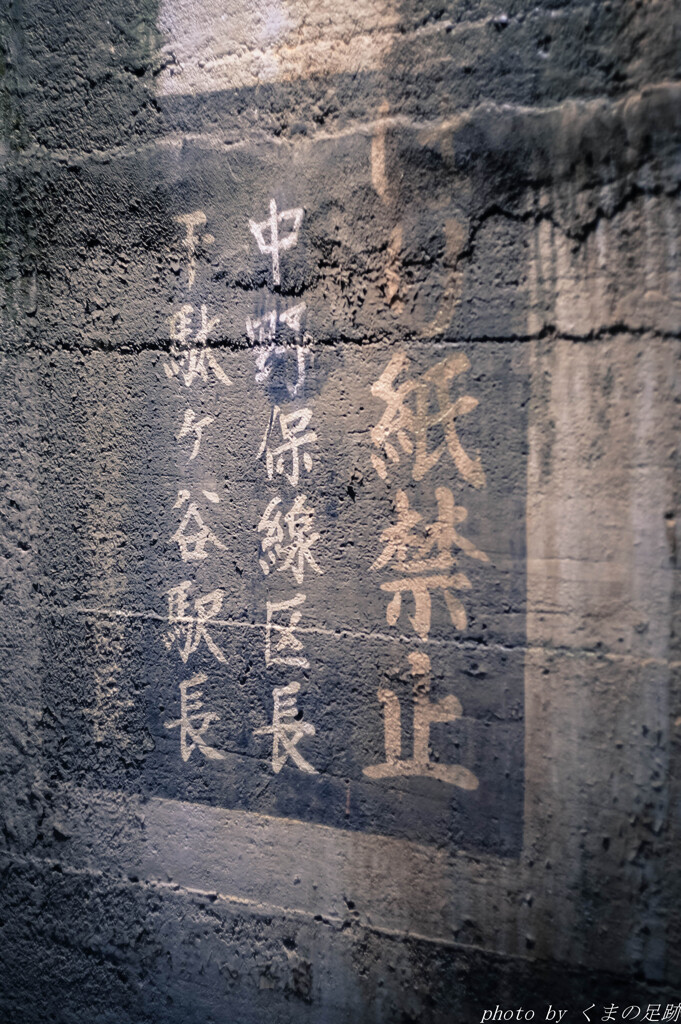 紙禁止
中野保線区長
千駄ケ谷駅長
photo by くまの足跡